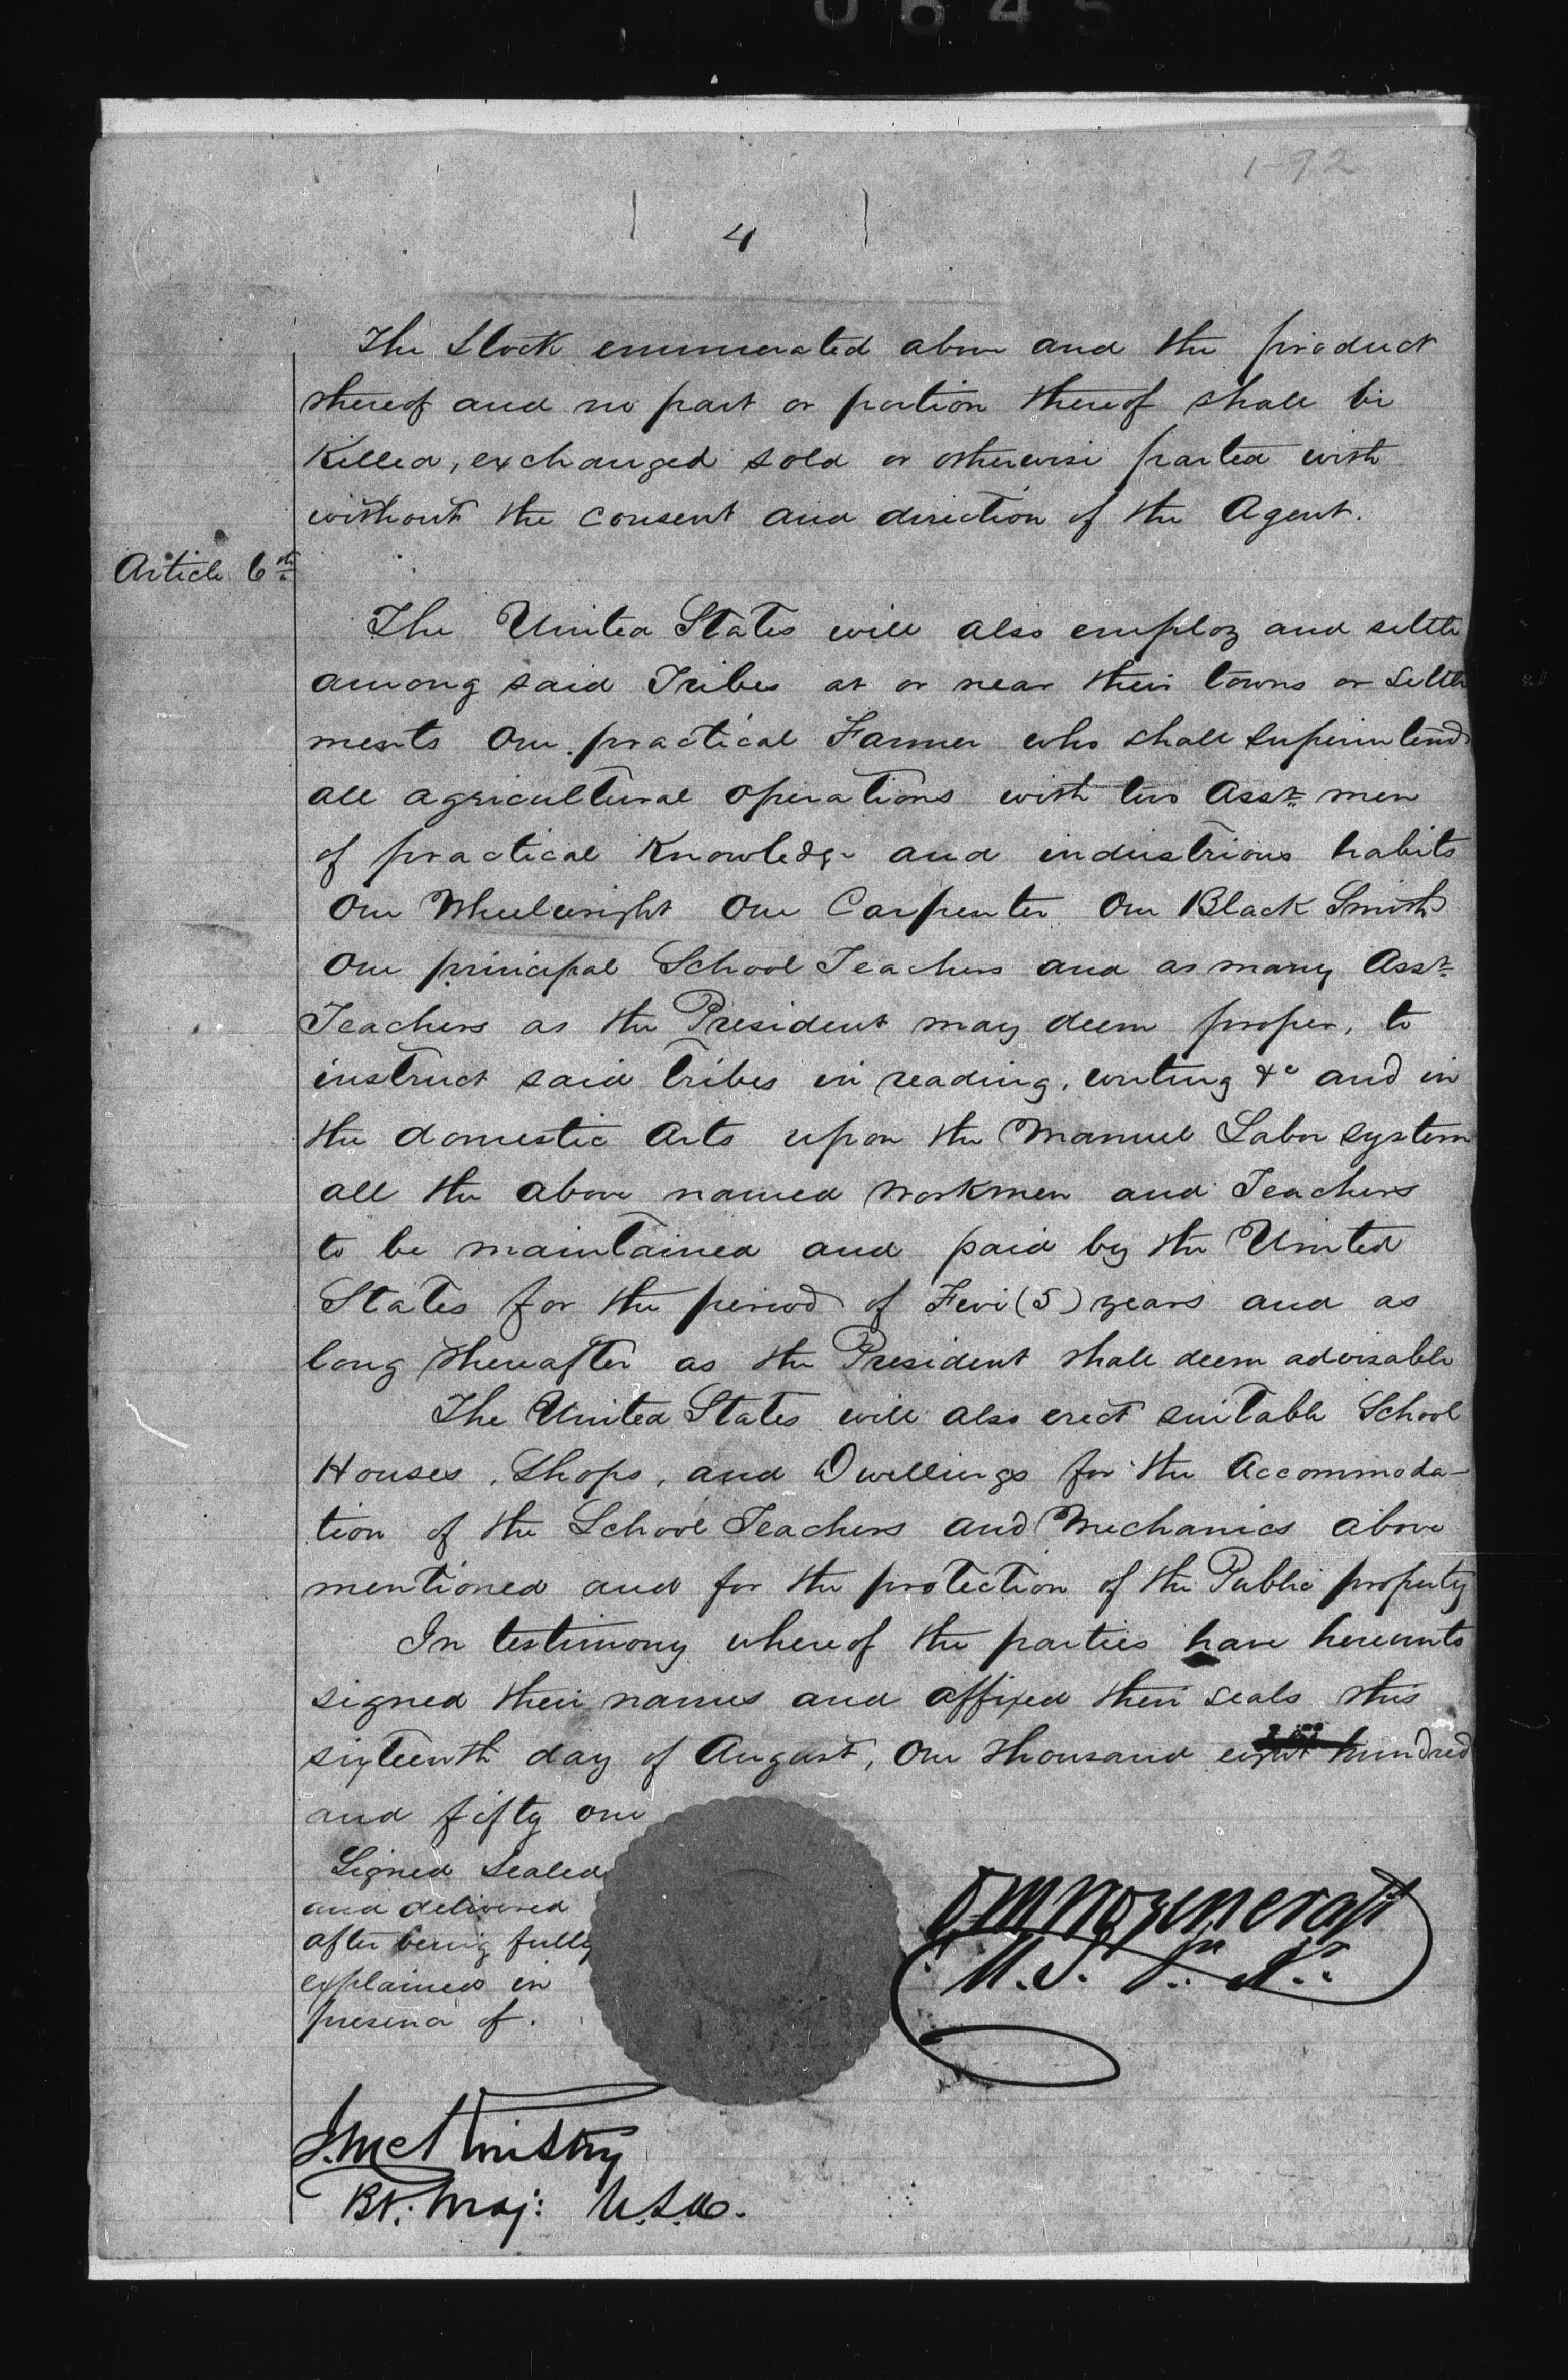 0645
1-92
4
The Stock enumerated above and the product
thereof and no part or portion thereof shall be
Killed, exchanged sold or otherwise parted with
without the consent and direction of the Agent.
Article 6th
The United States will also employ and settle
among said Tribes at or near their towns or Settle
ments One practical Farmer who shall superintend
all agricultural operations with two Asst. men
of practical Knowledge and industrious habits
One Wheelwright One Carpenter One Black Smith
One principal School Teachers and as many Asst.
Teachers as the President may deem proper, to
instruct said Tribes in reading, writing &c and in
the domestic Arts upon the Manuel Labor system
all the above named Workmen and Teachers
to be maintained and paid by the United
States for the period of Five (5) years and as
long thereafter as the President shall deem advisable
The United States will also erect suitable School
Houses, Shops, and Dwellings for the Accommoda-
tion of the School Teachers and Mechanics above
mentioned and for the protection of the Public property
In testimony whereof the parties have hereunto
signed their names and affixed their seals this
sixteenth day of August, One thousand eight hundred
and fifty one
Signed Sealed
and delivered
after being fully
explained in
presence of.
O M Wozencraft
U.S. I. A.
J. McKinstry
Bt. Maj: U.S.A.